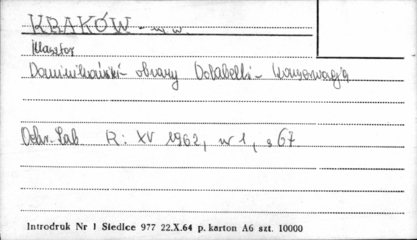 KRAKÓW - m w.
Klasztor
Dominikański - obrazy Dolabelli - konserwacja
Ochr. Zab R: XV 1962, nr 1, s 67.
Introdruk Nr 1 Siedlce 977 22.X.64 p. karton A6 szt. 10000